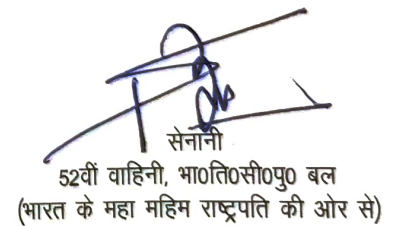 सेनानी
52वीं वाहिनी, भा0ति0सी0पु0 बल
(भारत के महा महिम राष्ट्रपति की ओर से)